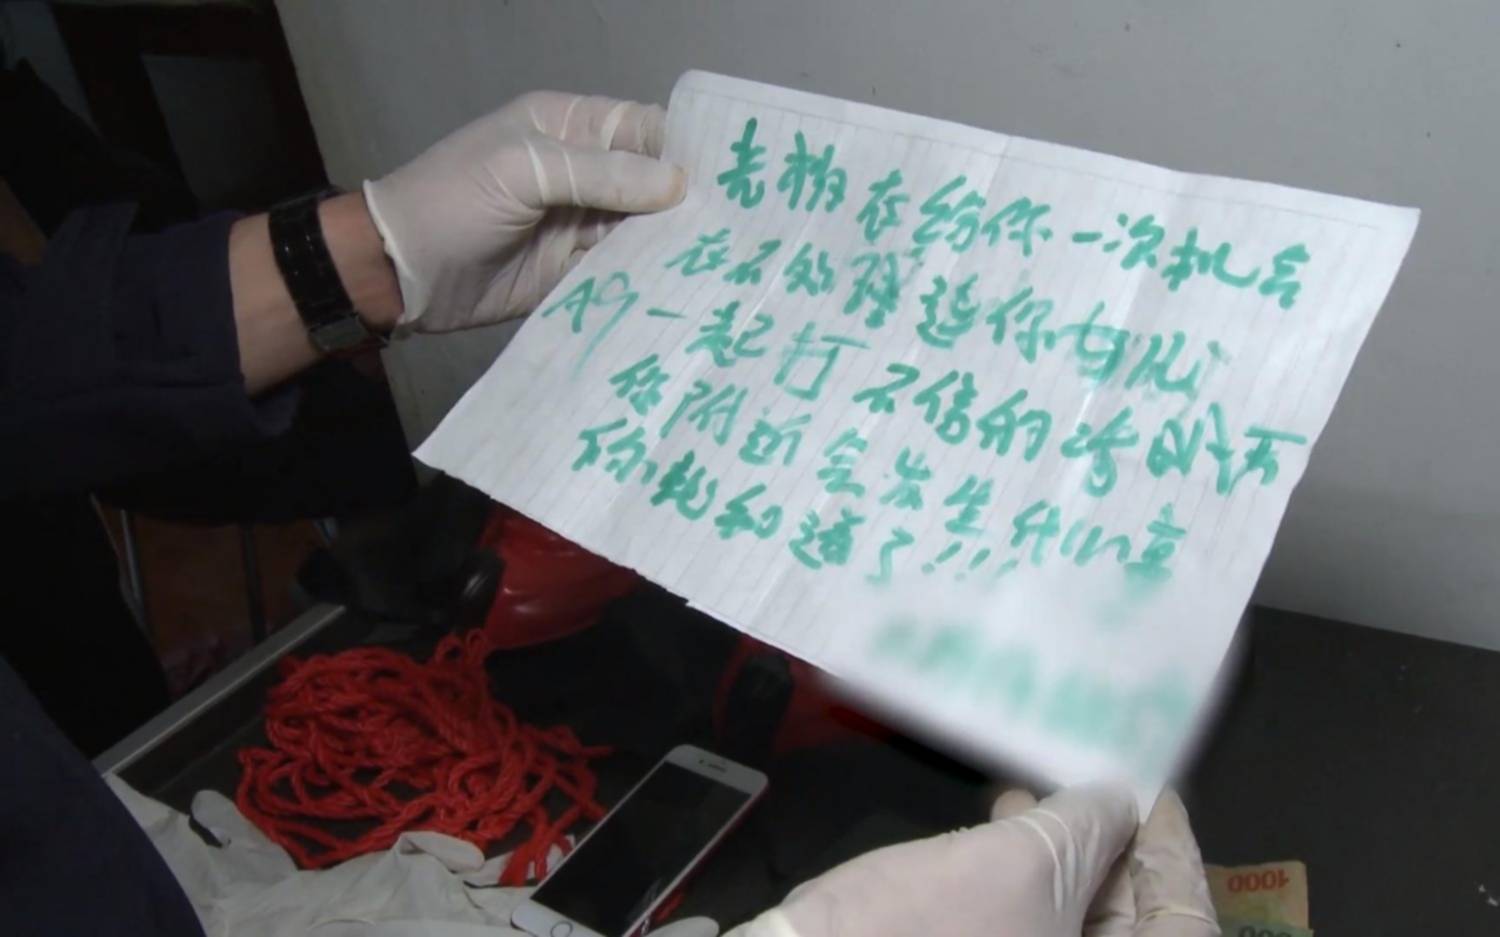 老板在给你一次机会
在不处理连你
A9一起打不信的话
你附近会发生什么事
你就知道了!!
1000